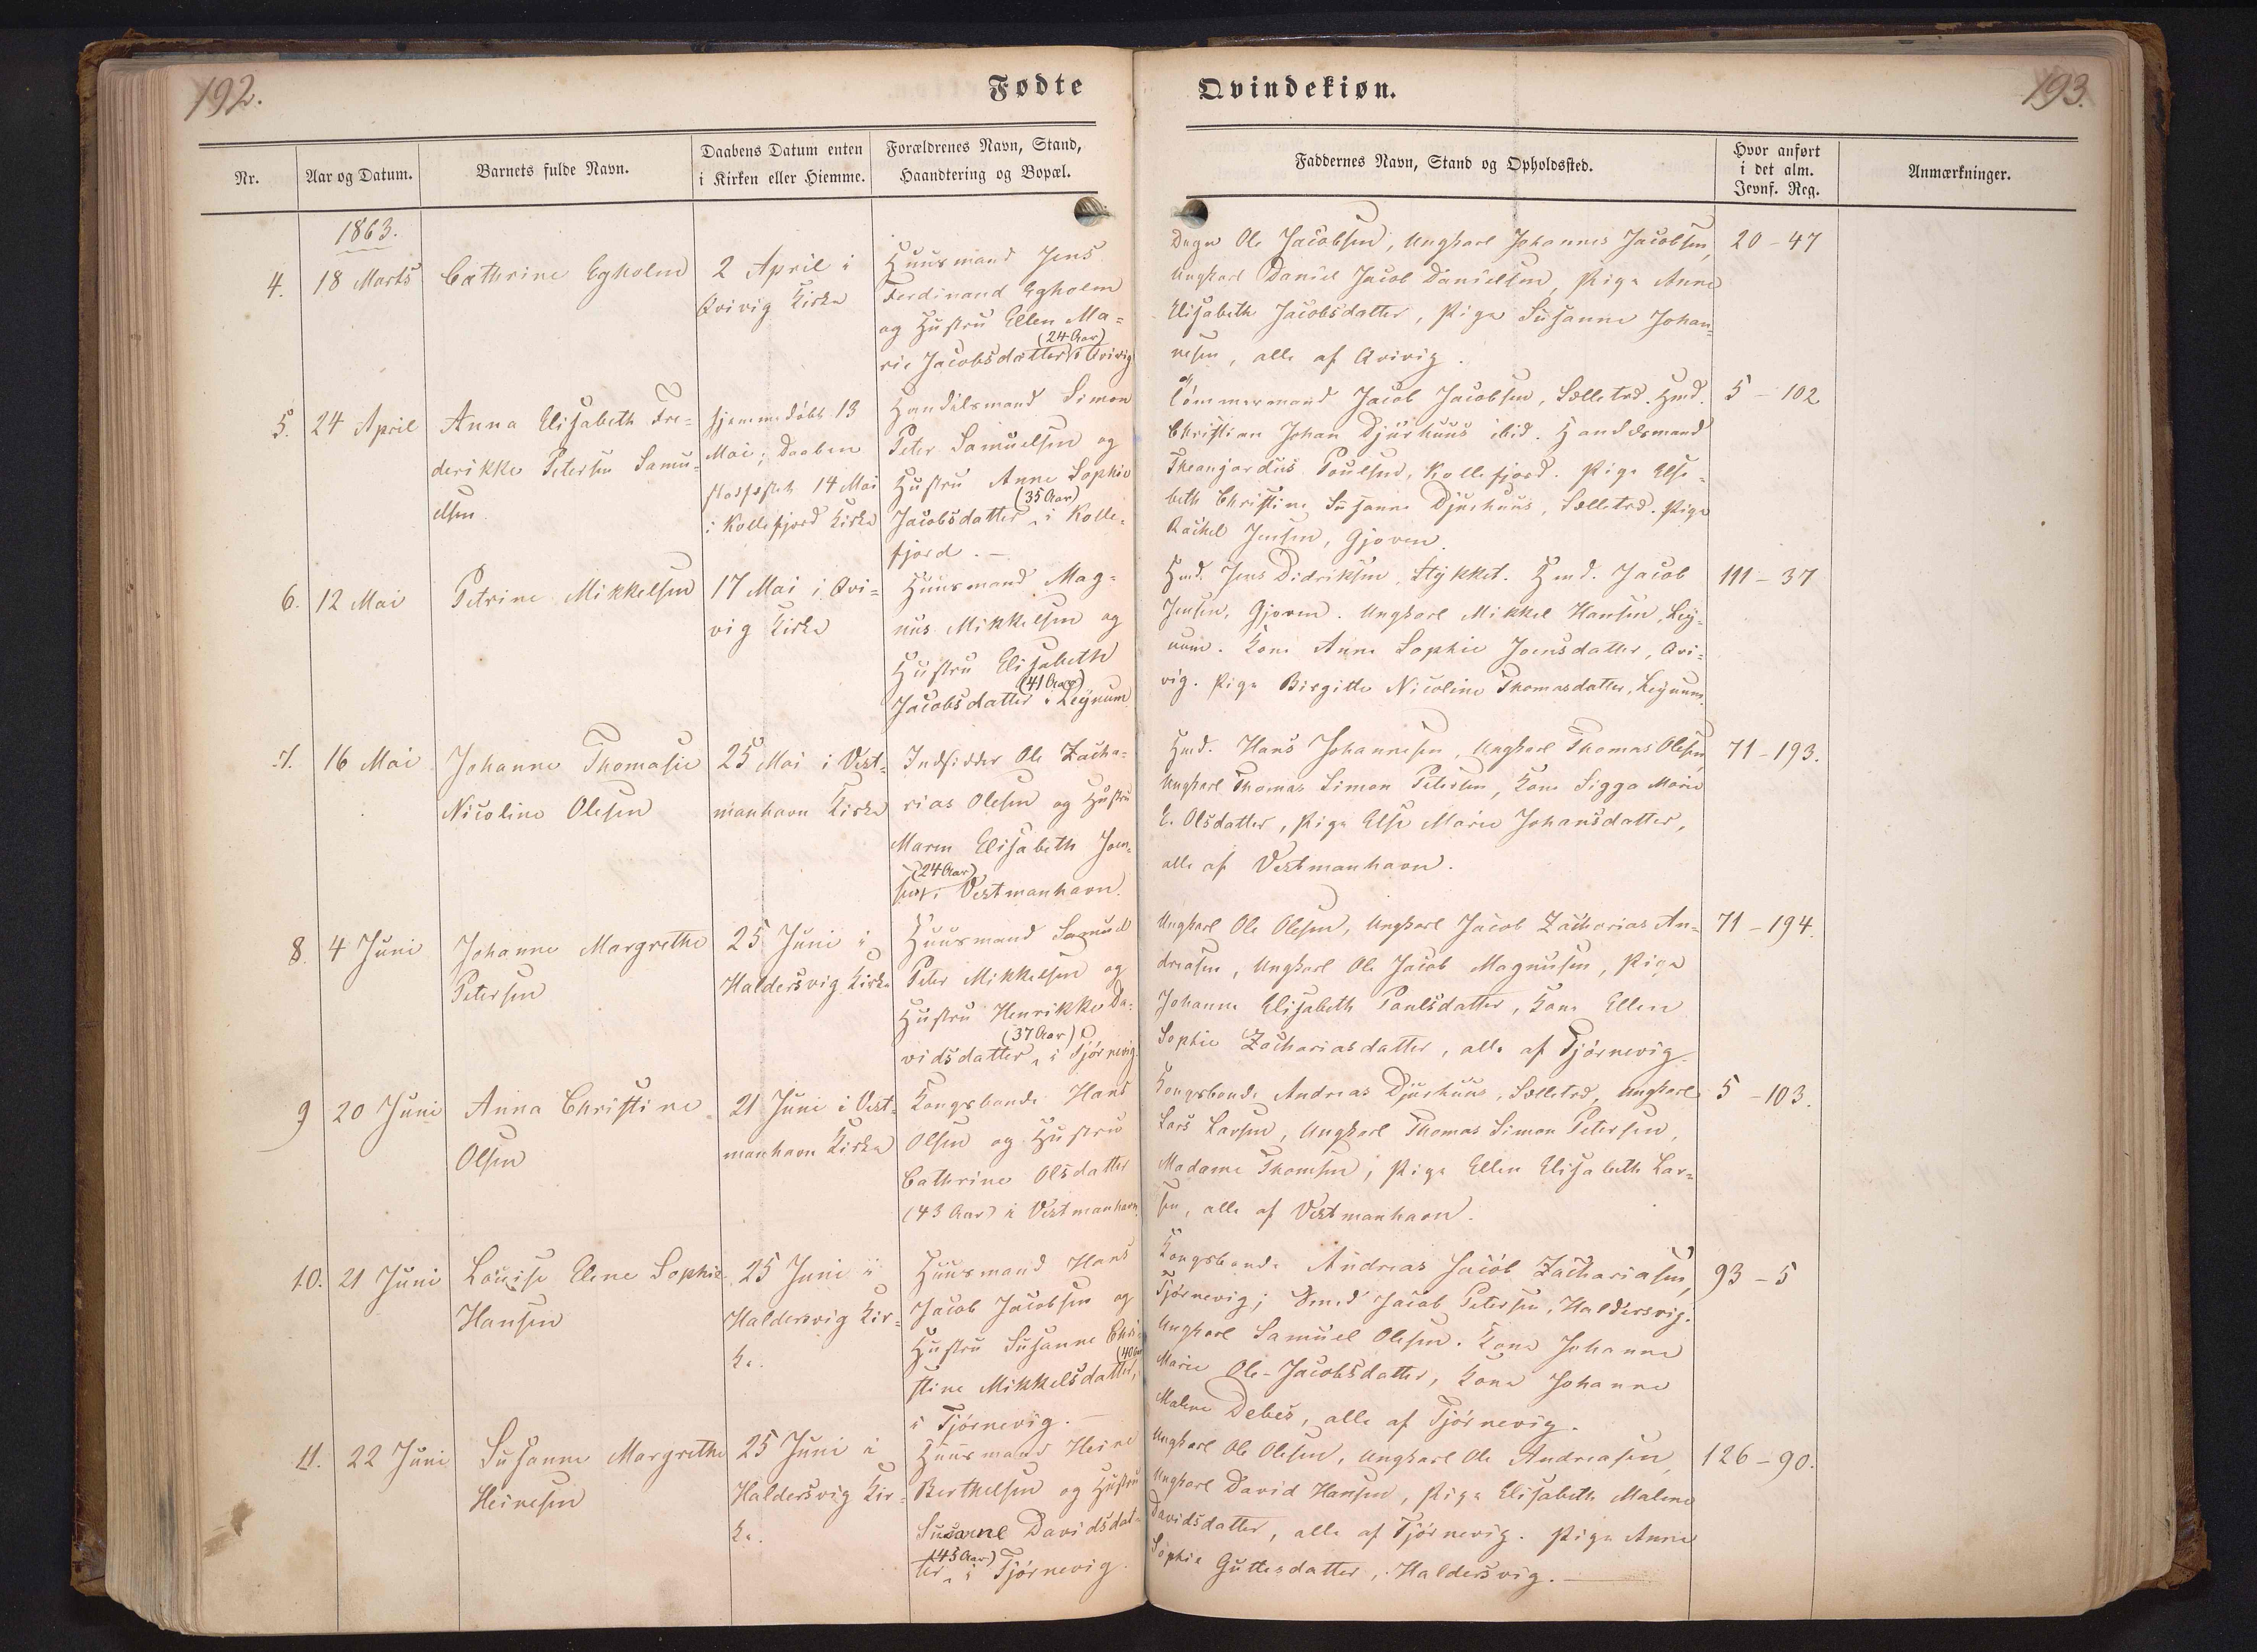 192.
Fødte
Nr.
Aar og Datum.
Barnets fulde Navn.
Daabens Datum enten
i Kirken eller Hiemme.
Forældrenes Navn, Stand,
Haandtering og Bopæl.
1863.
4.
18 Marts
Cathrine Egholm
2 April i
Qvivig Kirke
Huusmand Jens
Ferdinand Egholm
og Hustru Ellen Ma=
(24 Aar)
rie Jacobsdatter i Qvivig
5.
24 April
Anna Elisabeth Fre=
derikke Petersen Samu=
elsen
Hjemmedøbt 13
Mai; Daaben
stadfæstet 14 Mai
i Kollefjord Kirke
Handelsmand Simon
Peter Samuelsen og
Hustru Anne Sophie
(35 Aar)
Jacobsdatter i Kolle=
fjord. —
6.
12 Mai
Petrine Mikkelsen
17 Mai i Qvi=
vig Kirke
Huusmand Mag=
nus Mikkelsen og
Hustru Elisabeth
(41 Aar)
Jacobsdatter i Leynum
7.
16 Mai
Johanne Thomasie
Nicoline Olesen
25 Mai i Vest=
manhavn Kirke
Indsidder Ole Zacha=
rias Olesen og Hustru
Maren Elisabeth Joen=
(24 Aar)
sen i Vestmanhavn.
8.
4 Juni
Johanne Margrethe
Petersen
25 Juni i
Haldersvig Kirke
Huusmand Samuel
Peter Mikkelsen og
Hustru Henrikke Da=
(37 Aar)
vidsdatter i Tjørnevig.
9
20 Juni
Anna Christine
Olsen
21 Juni i Vest=
manhavn Kirke
Kongsbonde Hans
Olsen og Hustru
Cathrine Olsdatter
(43 Aar) i Vestmanhavn.
10.
21 Juni
Louise Elene Sophie
Hansen
25 Juni i
Haldersvig Kir=
ke.
Huusmand Hans
Jacob Jacobsen og
Hustru Susanne Chri
(40 Aar
stine Mikkelsdatter,
i Tjørnevig. —
11.
22 Juni
Susanne Margrethe
Heinesen
25 Juni i
Haldersvig Kir=
ke.
Huusmand Heine
Berthelsen og Hustru
Susanne Davidsdat=
(43 Aar)
ter i Tjørnevig.
Qvindekiøn.
193.
Faddernes Navn, Stand og Opholdssted.
Hvor anført
i det alm.
Jevnf. Reg.
Anmærkninger.
Ole Jacobsen, Ungkarl Johannes Jacobsen,
20 - 47
Ungkarl Daniel Jacob Danielsen, Pige Anne
Elisabeth Jacobsdatter, Pige Susanne Johan=
nesen, alle af Qvivig.
Tømmermand Jacob Jacobsen, Sælletræd. Hmd.
5 - 102
Christian Johan Djurhuus ibid. Handelsmand
Poulsen, Kollefjord. Pige Else=
beth Christine Susanne Djurhuus, Sælletræd. Pige
Rachel Jensen, Gjøven.
Hmd. Jens Didriksen, Stykket. Hmd. Jacob
111 - 37
Jensen, Gjøven. Ungkarl Mikkel Hansen, Ley=
num. Kone Anne Sophie Joensdatter, Qvi=
vig. Pige Birgitte Nicoline Thomasdatter, Leynum.
Hmd. Hans Johannesen, Ungkarl Thomas Olesen,
71 - 193.
Ungkarl Thomas Simon Petersen, Kone Sigga Marie
E. Olsdatter, Pige Else Marie Johansdatter,
alle af Vestmanhavn.
Ungkarl Ole Olesen, Ungkarl Jacob Zacharias An=
71 - 194.
dreasen, Ungkarl Ole Jacob Magnusen, Pige
Johanne Elisabeth Poulsdatter, Kone Ellen
Sophie Zachariasdatter, alle af Tjørnevig.
Kongsbonde Andreas Djurhuus, Sælletræd, Ungkarl
5 - 103.
Lars Larsen, Ungkarl Thomas Simon Petersen,
Madame Thomsen, Pige Ellen Elisabeth Lar=
sen, alle af Vestmanhavn.
Kongsbonde Andreas Jacob Zachariasen,
93 - 5
Tjørnevig; Smed Jacob Petersen, Haldersvig.
Ungkarl Samuel Olesen. Kone Johanne
Marie Ole-Jacobsdatter, Kone Johanne
Malene Debes, alle af Tjørnevig.
Ungkarl Ole Olesen, Ungkarl Ole Andreasen,
126 - 90.
Ungkarl David Hansen, Pige Elisabeth Malene
Davidsdatter, alle af Tjørnevig. Pige Anne
Sophie Guttesdatter, Haldersvig. —